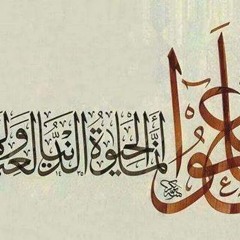 اعلموا أنما الحيوة الدنيا لعب